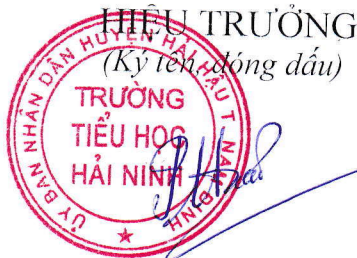 HIỆU TRƯỞNG
(Ký tên, đóng dấu)
ỦY BAN NHÂN DÂN HUYỆN HẢI HẬU T. NAM ĐỊNH
TRƯỜNG
TIỂU HỌC
HẢI NINH